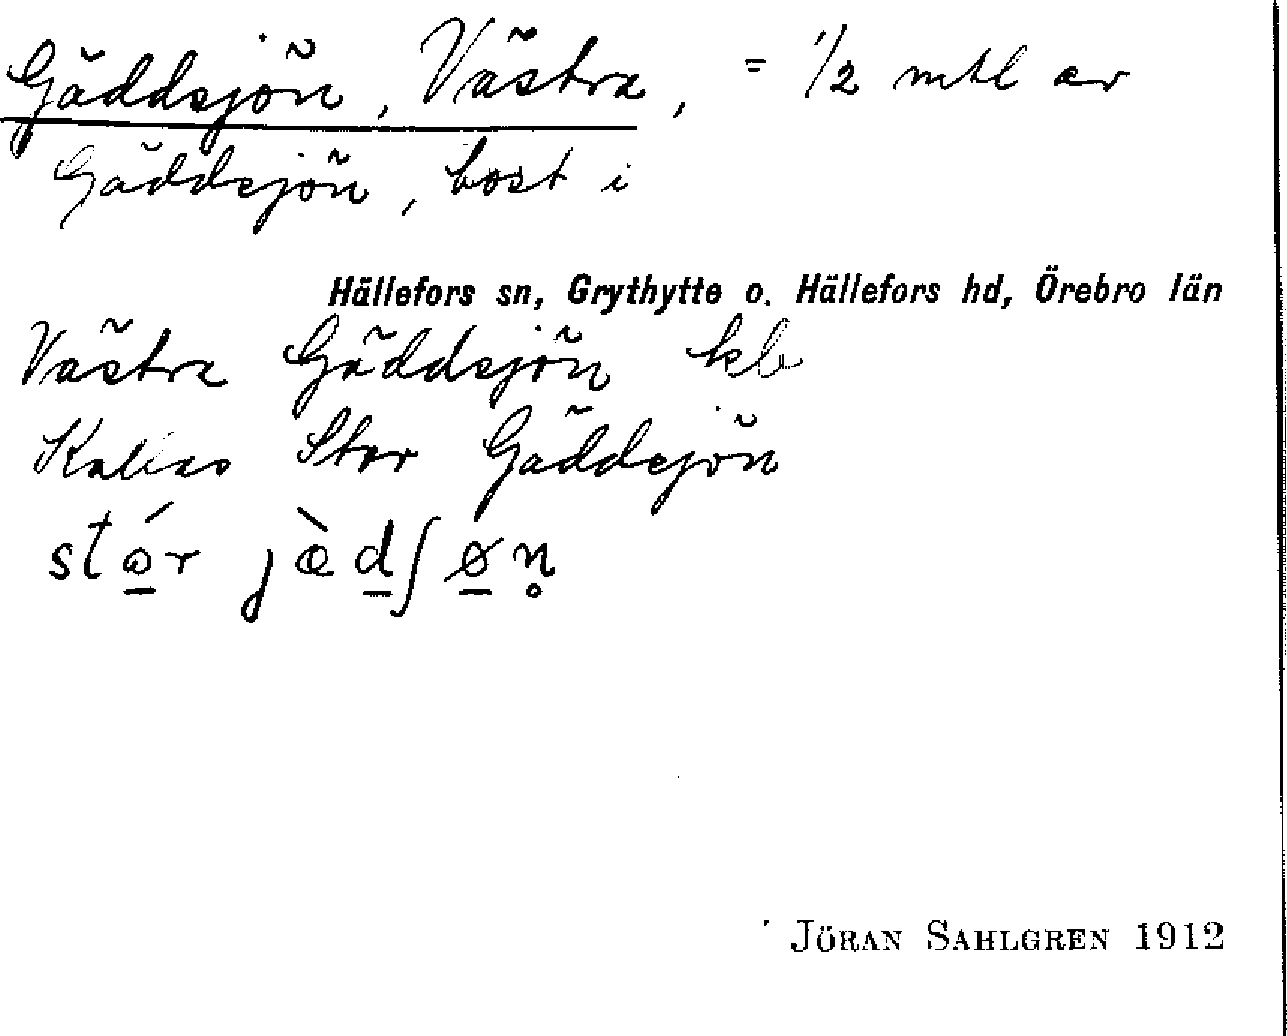 Gäddsjön, Västra, = 1/2 mtl av
Gäddsjön, bost i
Hällefors sn, Grythytte o. Hällefors hd, Örebro län
Västra Gäddsjön kb
Kallas Stor Gäddsjön
stó̱r jæ̀ḏʃø̱n̥
JÖRAN SAHLGREN 1912